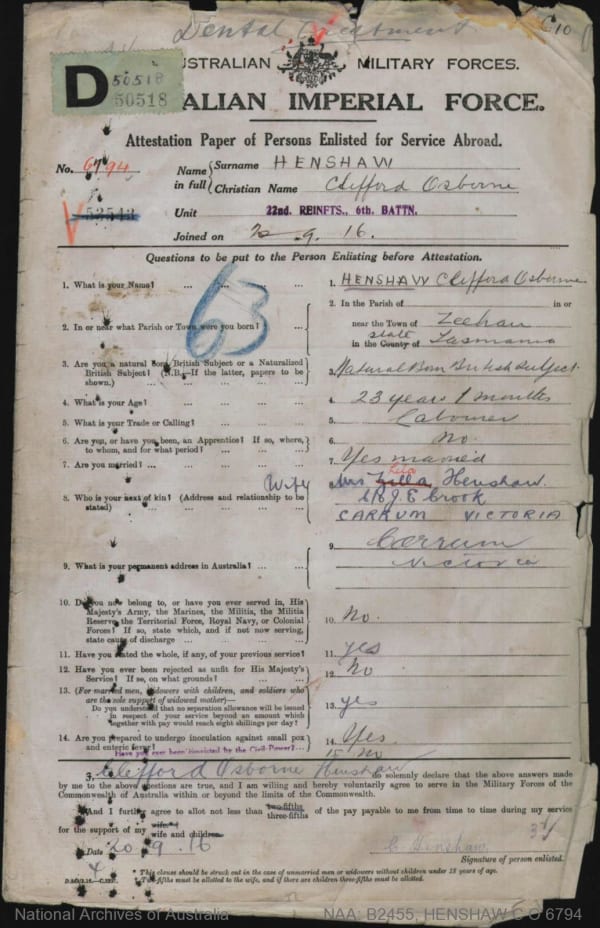 Dental Treatment
C10
AUSTRALIAN MILITARY FORCES.
D 50518
50518
ALIAN IMPERIAL FORCE.
Attestation Paper of Persons Enlisted for Service Abroad.
No. 6794
Name in full { Surname HENSHAW
Christian Name Clifford Osborne
53543
Unit 22nd. REINFTS., 6th. BATTN.
Joined on 20.9.16.
Questions to be put to the Person Enlisting before Attestation.
63
1. What is your Name? ... ... ... 1. HENSHAW Clifford Osborne
2. In or near what Parish or Town were you born? ... 2. In the Parish of in or
near the Town of Zeehan
state
in the County of Tasmania
3. Are you a natural born British Subject or a Naturalized
British Subject? (N.B.—If the latter, papers to be
shown.) ... ... ... 3. Natural Born British Subject.
4. What is your Age? ... ... ... 4. 23 years 1 months
5. What is your Trade or Calling? ... ... 5. Labourer
6. Are you, or have you been, an Apprentice? If so, where,
to whom, and for what period? ... ... 6. No.
7. Are you married? ... ... ... 7. Yes married
Wife
Lila
8. Who is your next of kin? (Address and relationship to be
stated) ... ... ... 8. Mrs. Henshaw.
CARRUM VICTORIA
9. What is your permanent address in Australia? ... 9. Carrum
Victoria
10. Do you now belong to, or have you ever served in, His
Majesty's Army, the Marines, the Militia, the Militia
Reserve, the Territorial Force, Royal Navy, or Colonial
Forces? If so, state which, and if not now serving,
state cause of discharge ... ... 10. No.
11. Have you stated the whole, if any, of your previous service? 11. yes
12. Have you ever been rejected as unfit for His Majesty's
Service? If so, on what grounds? ... 12. No
13. (For married men, widowers with children, and soldiers who
are the sole support of widowed mother)—
Do you understand that no separation allowance will be
issued in respect of your service beyond an amount which
together with pay would reach eight shillings per day? 13. yes
14. Are you prepared to undergo inoculation against small pox
and enteric fever? 14. Yes.
Have you ever been convicted by the Civil Power?... 15. No
I, Clifford Osborne Henshaw do solemnly declare that the above answers made
by me to the above questions are true, and I am willing and hereby voluntarily agree to serve in the Military Forces of the
Commonwealth of Australia within or beyond the limits of the Commonwealth.
*And I further agree to allot not less than two-fifths
three-fifths of the pay payable to me from time to time during my service
for the support of my wife
wife and children
Date 20.9.16
C Henshaw.
Signature of person enlisted.
* This clause should be struck out in the case of unmarried men or widowers without children under 18 years of age.
Two-fifths must be allotted to the wife, and if there are children three-fifths must be allotted.
National Archives of Australia
NAA: B2455, HENSHAW C O 6794